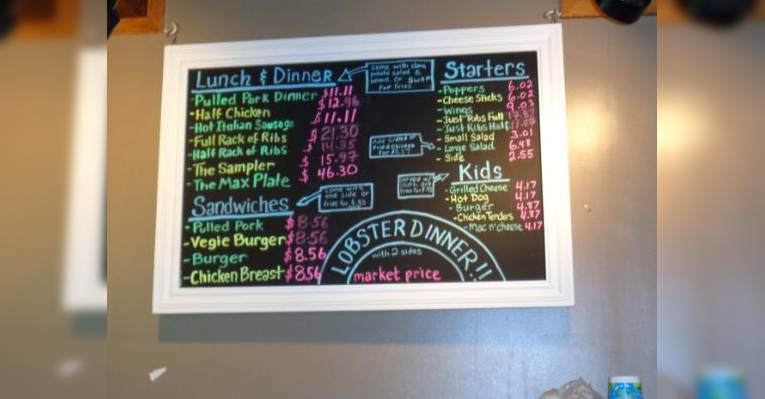 Lunch & Dinner
come with slaw,
potato salad &
beans or swap
for fries
-Pulled Pork Dinner $11.11
-Half Chicken $12.96
-Hot Italian Sausage $11.11
-Full Rack of Ribs $21.30
-Half Rack of Ribs $14.35
-The Sampler $15.97
-The Max Plate $46.30
Sandwiches
come with
one side or
fries for
-Pulled Pork $8.56
-Vegie Burger $8.56
-Burger $8.56
-Chicken Breast $8.56
LOBSTER DINNER!!
with 2 sides
market price
Starters
-Poppers 6.02
-Cheese Sticks 6.02
-Wings 9.03
-Just Ribs Full
-Just Ribs Half
-Small Salad 3.01
-Large Salad 6.48
-Side 2.55
Kids
-Grilled Cheese 4.17
-Hot Dog 4.17
-Burger 4.87
-Chicken Tenders 4.87
-Mac n' cheese 4.17